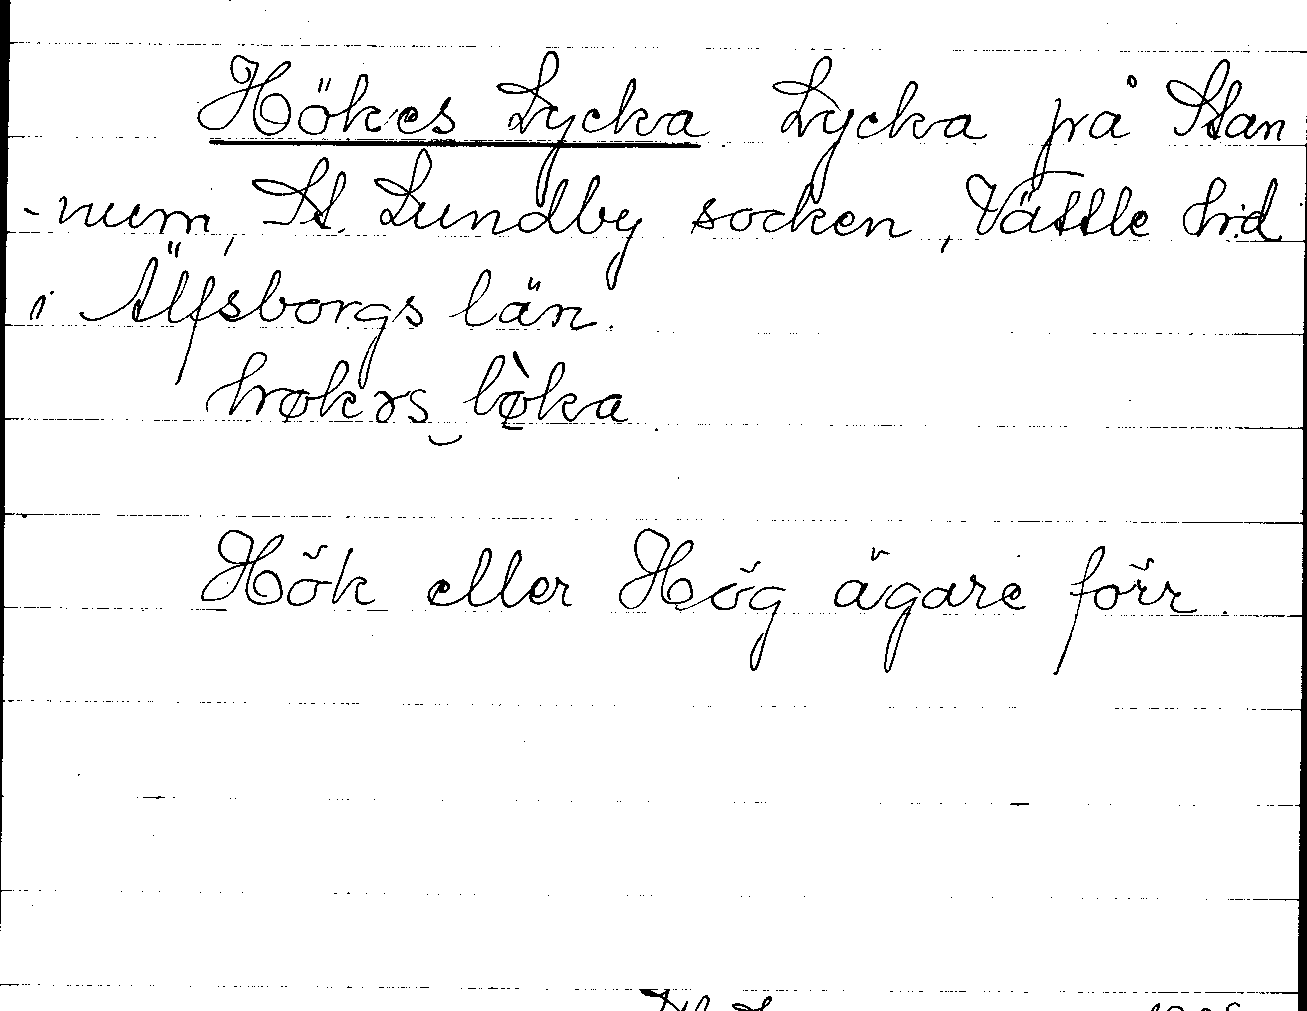 Hökes Lycka Lycka på Stan
-num, St. Lundby socken, Vättle hd
i Älfsborgs län.
høkəs lø̀ka.
Hök eller Hög ägare förr.